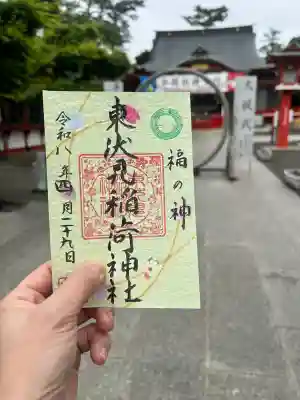 福の神
東伏見稲荷神社
令和八年四月二十九日
大祓式